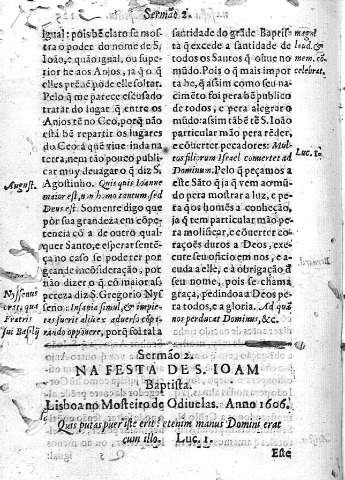 Sermão 2.
igual: pois bẽ claro se mos-
tra o poder do nome de S.
Ioão, e quão igual, ou supe-
rior he aos Anjos, ja q̃ o q̃
elles
pode elle soltar.
Pelo q̃ me parece escusado
tratar do lugar q̃ entre os
Anjos tẽ no Ceo, porq̃ não
está bẽ repartir os lugares
do Ceo à quẽ viue inda na
terra, nem tão pouco publi-
car muy deuagar o q̃ diz S.
Agostinho. Quis quis Ioanne
maior est, non homo tantum sed
Deus est. Somente digo que
por sua grandeza em cõpe-
tencia cõ a de outro qual-
quer Santo, e esperar sentẽ-
ça no caso se poderer por
grande incõsideração, por
não dizer o q̃ cõ maior as-
pereza diz S. Gregorio Nys-
seno: Insania simul, & impie-
tas fuerit alios ex aduerso cõpa-
rando opponere, porq̃ foi tal a
August.
Nyssenus
Fratris
sui Basilij
santidade do grãde Baptis-
ta q̃ excede a santidade de
todos os Santos q̃ ouue no
mũdo. Pois o q̃ mais impor
ta he, q̃ assim como seu na-
cimẽto foi pera bẽ publico
de todos, e pera alegrar o
mũdo: assim tãbẽ tẽ S. Ioão
particular mão pera rẽder,
e cõuerter pecadores: Mul-
tos filiorum Israel conuertet ad
Dominum. Pelo q̃ peçamos a
este Sãto q̃ ja q̃ vem ao mũ-
do pera mostrar a luz, e pe-
ra q̃ os homẽs a conheção,
ja q̃ tem particular mão pe-
ra molificar, e cõuerter co-
rações duros a Deos, exe-
cute seu officio em nos, e a-
cuda a elle, e à obrigação d̃
seu nome, pois se chama
graça, pedindo a a Deos pe-
ra todos, e a gloria. Ad quã
nos perducat Dominus, &c.
celebrat.
Luc. 1.
Sermão 2.
NA FESTA DE S. IOAM
Baptista.
Lisboa no Mosteiro de Odiuelas. Anno 1606.
Quis putas puer iste erit? etenim manus Domini erat
cum illo. Luc. 1.
Este